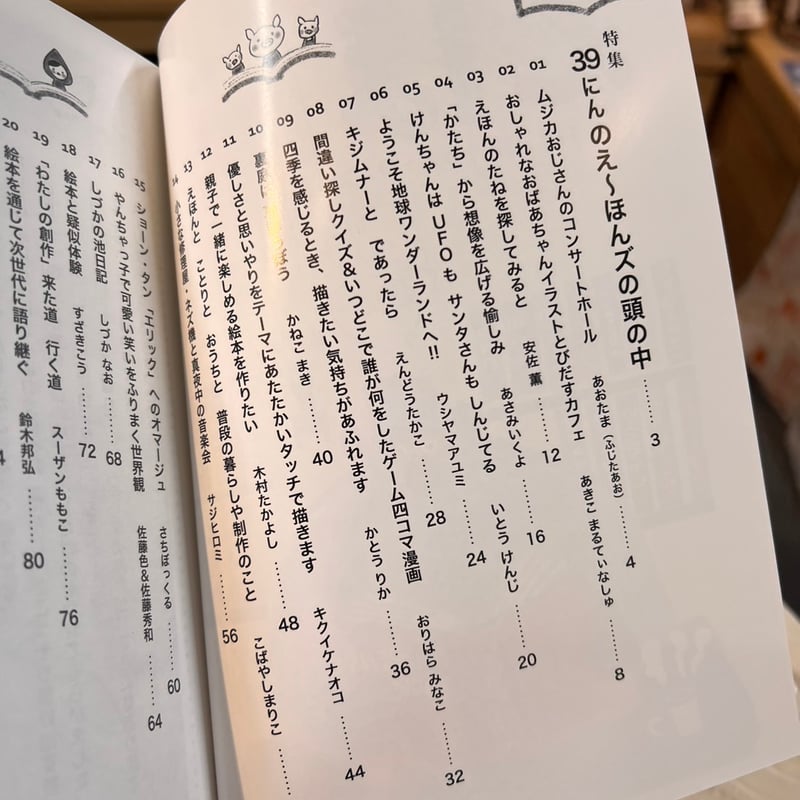 特集
39にんのえ〜ほんズの頭の中 ……… 3
01 ムジカおじさんのコンサートホール あおたま（ふじたあお） ……… 4
02 おしゃれなおばあちゃんイラストとびだすカフェ あきこ まるてぃなしゅ ……… 8
03 えほんのたねを探してみると 安佐 薫 ……… 12
04 「かたち」から想像を広げる愉しみ あさみいくよ ……… 16
05 けんちゃんは UFOも サンタさんも しんじてる いとう けんじ ……… 20
06 ようこそ地球ワンダーランドへ!! ウシヤマアユミ ……… 24
07 キジムナーと であったら えんどうたかこ ……… 28
08 間違い探しクイズ&いつどこで誰が何をしたゲーム四コマ漫画 おりはら みなこ ……… 32
09 四季を感じるとき、描きたい気持ちがあふれます かとう りか ……… 36
10 裏庭に かねこ まき ……… 40
11 優しさと思いやりをテーマにあたたかいタッチで描きます キクイケナオコ ……… 44
12 親子で一緒に楽しめる絵本を作りたい 木村たかよし ……… 48
13 えほんと ことりと おうちと 普段の暮らしや制作のこと こばやしまりこ ………
14 小さな修理屋・ネズ機と真夜中の音楽会 サジヒロミ ……… 56
15 ショーン・タン「エリック」へのオマージュ さちぼっくる ……… 60
16 やんちゃっ子で可愛い笑いをふりまく世界観 佐藤色&佐藤秀和 ……… 64
17 しづかの池日記 しづか なお ……… 68
18 絵本と疑似体験 すざきこう ……… 72
19 「わたしの創作」来た道 行く道 スーザンももこ ……… 76
20 絵本を通じて次世代に語り継ぐ 鈴木邦弘 ……… 80